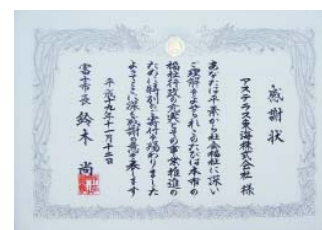 感謝状
アステラス東海株式会社 様
あなたは平素から社会福祉に深い
ご理解をよせられこのたびは本市の
福祉行政の充実とその事業推進の
ために特別のご寄付を賜わりました
よってここに深く感謝の意を表します
平成十九年十一月十二日
富士市長 鈴木 尚